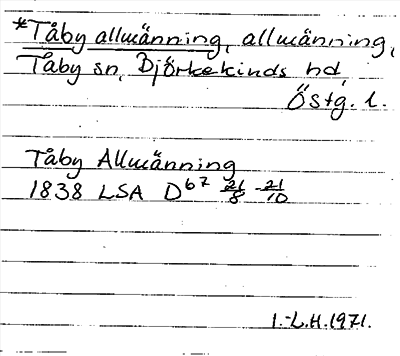 *Tåby allmänning, allmänning,
Tåby sn, Björkekinds hd,
Östg. l.
Tåby Allmänning
1838 LSA D67 21/8 - 21/10
I.-L.H. 1971.